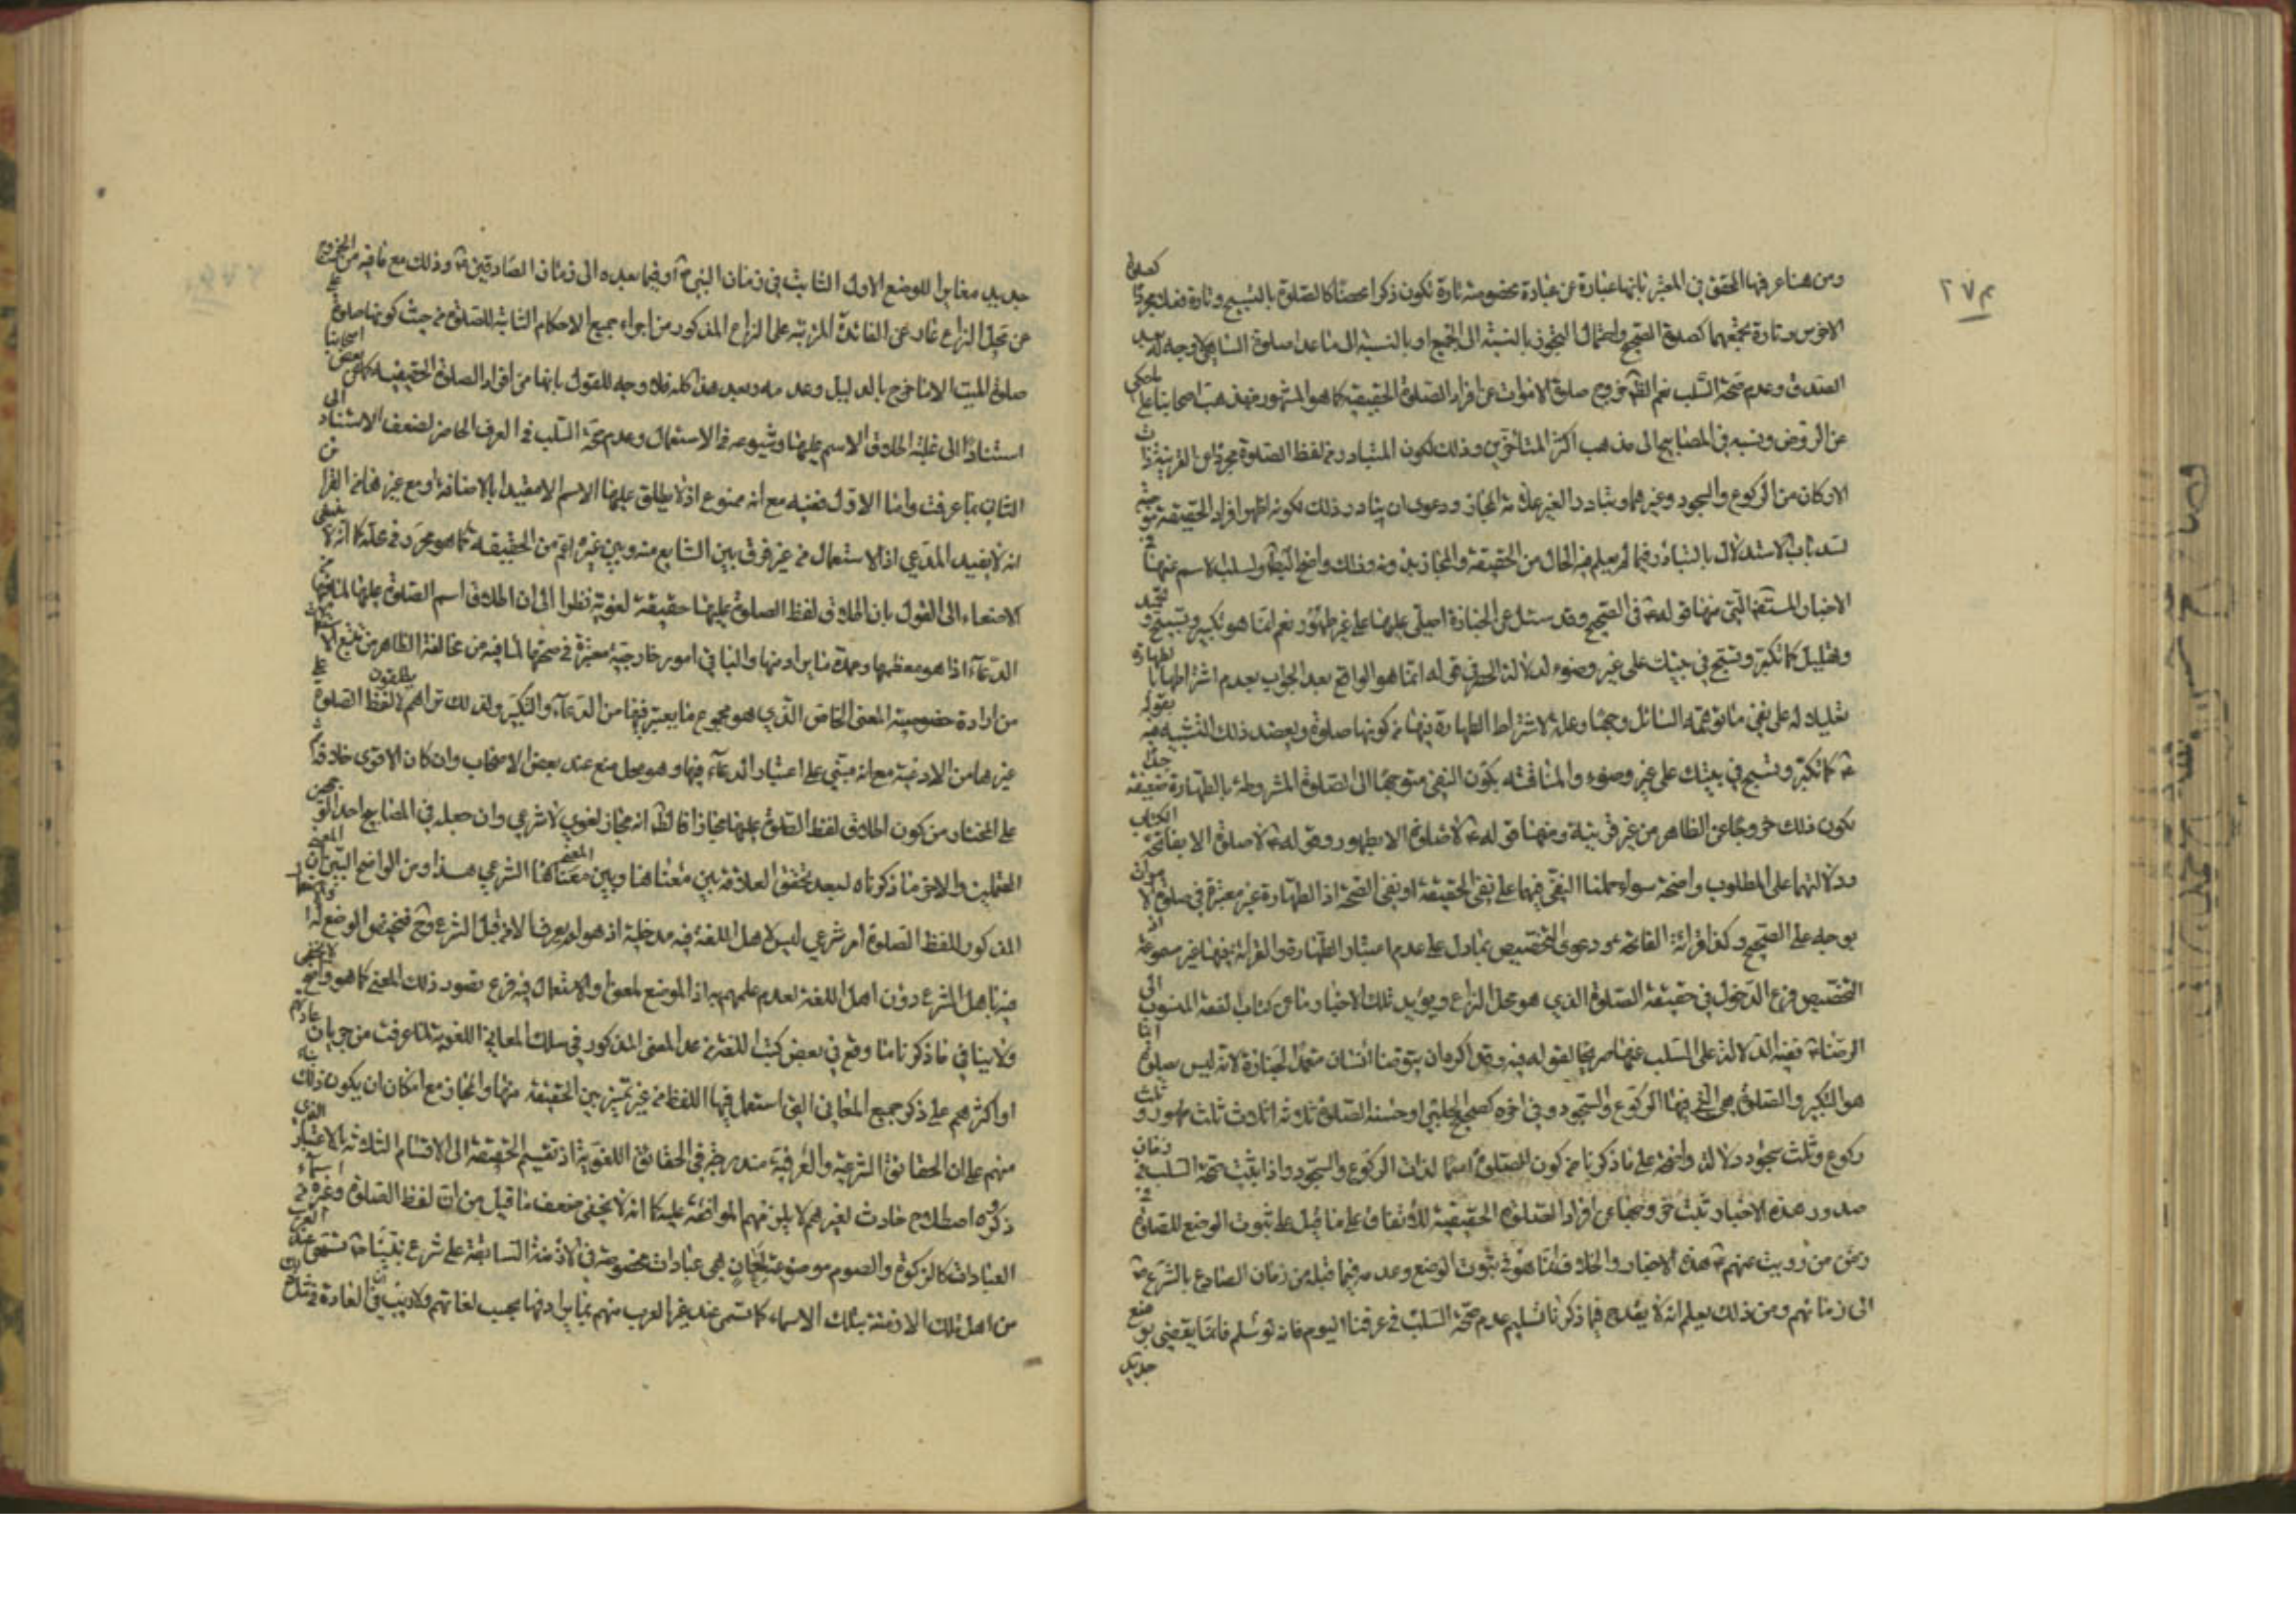 م٢٧
ومن هنا عرفها المحقق في المعتبر بانها عبارة عن عبادة مخصوصة تارة تكون ذكرا محضا كالصلوة بالتسبيح وتارة فعلا مجردا كصلوة
الاخرس وتارة تجمعهما كصلوة الصحيح واحتمال التجوز بالنسبة الى الجميع او بالنسبة الى ما عدا صلوة الساهي لا وجه له بعد
الصدق وعدم صحة السلب نعم الظ خروج صلوة الاموات عن افراد الصلوة الحقيقية كما هو المشهور فمذهب اصحابنا على ما حكي
عن الروض ونسبه في المصابيح الى مذهب اكثر المتاخرين وذلك لكون المتبادر من لفظ الصلوة مجردا عن القرينة ذات
الاركان من الركوع والسجود وغيرهما وتبادر الغير علامة المجاز ودعوى ان تبادر ذلك لكونه اظهر افراد الحقيقة
لسد باب الاستدلال بالتبادر فيما لم يعلم فيه الحال من الحقيقة والمجاز بين وذلك واضح ولسلب الاسم عنها في
الاخبار المستفيضة التي منها قوله ع في الصحيح وقد سئل عن الجنازة اصلي عليها على غير طهور نعم انما هو تكبير وتسبيح وتحميد
وتهليل كما تكبر وتسبح في بيتك على غير وضوء لدلالة الحصر في قوله انما هو الواقع بعد الجواب بعدم اشتراطها بالطهارة
تعليلا له على نفي ما توهمه السائل وجها وعلة لاشتراط الطهارة فيها من كونها صلوة ويعضد ذلك التشبيه فيه بقوله
ع كما تكبر وتسبح في بيتك على غير وضوء والمناقشة بكون النفي متوجها الى الصلوة المشروطة بالطهارة ضعيفة جدا
لكون ذلك خروجا عن الظاهر من غير قرينة ومنها قوله ع لا صلوة الا بطهور وقوله ع لا صلوة الا بفاتحة الكتاب
ودلالتهما على المطلوب واضحة سواء حملنا النفي فيهما على نفي الحقيقة او نفي الصحة اذ الطهارة غير معتبرة في صلوة الاموات
بوجه على الصحيح وكذا قرائة الفاتحة ودعوى التخصيص بما دل على عدم اعتبار الطهارة والقرائة فيها غير مسموعة اذ
التخصيص فرع الدخول في حقيقة الصلوة الذي هو محل النزاع ويؤيد تلك الاخبار ما عن كتاب الفقه المنسوب الى
الرضا ع ففيه الدلالة على السلب عنها صريحا لقوله فيه وقد اكره ان يتوضا انسان متعمدا لجنازة لانه ليس صلوة انما
هو التكبير والصلوة هي التي فيها الركوع والسجود وفي اخره كصحيح الحلبي او حسنه الصلوة ثلثة اثلاث ثلث طهور وثلث
ركوع وثلث سجود دلالة واضحة على ما ذكرنا من كون الصلوة اسما لذات الركوع والسجود واذا ثبت صحة السلب في زمان
صدور هذه الاخبار ثبت خروجها عن افراد الصلوة الحقيقية للاتفاق على ما قيل على ثبوت الوضع للصلوة في
زمن من رويت عنهم ع هذه الاخبار والخلاف انما هو في ثبوت الوضع وعدمه فيما قبله من زمان الصادع بالشرع ص
الى زمانهم ومن ذلك يعلم انه لا يقدح فيما ذكرنا تسليم عدم صحة السلب في عرفنا اليوم فانه لو سلم فانما يقضي بوضع
جديد
جديد مغاير للوضع الاول الثابت في زمان النبي ص او فيما بعده الى زمان الصادقين ع وذلك مع ما فيه من الخروج
عن محل النزاع عار عن الفائدة المترتبة على النزاع المذكور من اجراء جميع الاحكام الثابتة للصلوة من حيث كونها صلوة على
صلوة الميت الا ما خرج بالدليل وعدمه وبعد هذا كله فلا وجه للقول بانها من افراد الصلوة الحقيقية كما عن بعض اصحابنا
استنادا الى غلبة اطلاق الاسم عليها وشيوعه في الاستعمال وعدم صحة السلب في العرف الحاضر لضعف الاستناد الى
الثاني بما عرفت واما الاول ففيه مع انه ممنوع اذ لا يطلق عليها الاسم الا مقيدا بالاضافة او مع غيرها من القرائن
انه لا يفيد المدعي اذ الاستعمال من غير فرق بين الشايع منه وبين غيره اعم من الحقيقة كما هو محرر في محله كما انه لا ينبغي
الاصغاء الى القول بان اطلاق لفظ الصلوة عليها حقيقة لغوية نظرا الى ان اطلاق اسم الصلوة عليها لما فيها من
الدعاء اذ هو معظمها وعمدة ما يراد منها والباقي امور خارجية معتبرة في صحتها لما فيه من مخالفة الظاهر من تتبع الاستعمالات
من ارادة خصوصية المعنى الخاص الذي هو مجموع ما يعتبر فيها من الدعاء والتكبير ولذلك تراهم لا يطلقون لفظ الصلوة على
غيرها من الادعية مع انه مبتني على اعتبار الدعاء فيها وهو محل منع عند بعض الاصحاب وان كان الاقوى خلافه
على المختار من كون اطلاق لفظ الصلوة عليها مجازا فالظ انه مجاز لغوي لا شرعي وان جعله في المصابيح احد الوجهين
المحتملين والاخر ما ذكرناه لبعد تحقق العلاقة بين معناها وبين معناها الشرعي هذا ومن الواضح البين ان المعنى
المذكور للفظ الصلوة امر شرعي ليس لاهل اللغة فيه مدخلية اذ هو لم يعرف الا من قبل الشرع وح فيختص الوضع له
فيه باهل الشرع دون اهل اللغة لعدم علمهم به اذ الوضع لمعنى والاستعمال فيه فرع تصور ذلك المعنى كما هو واضح لا يخفى
ولا ينافي ما ذكرنا ما وقع في بعض كتب اللغة من عد المعنى المذكور في سلك المعاني اللغوية لما عرفت من جريان عادتهم
او اكثرهم على ذكر جميع المعاني التي استعمل فيها اللفظ من غير تميز بين الحقيقة منها والمجاز مع امكان ان يكون ذلك
منهم على ان الحقائق الشرعية والعرفية مندرجة في الحقائق اللغوية اذ تقسيم الحقيقة الى الاقسام الثلاثة بالاعتبار
ذكروه اصطلاح حادث لغيرهم لا يلزمهم الموافقة عليه كما انه لا يخفى ضعف ما قيل من ان لفظ الصلوة وغيره من اسماء
العبادات كالزكوة والصوم موضوعة لمعان هي عبادات مخصوصة في الازمنة السابقة على شرع نبينا ص تسمى عند العرب
من اهل تلك الازمنة بتلك الاسماء كما تسمى عند غير العرب منهم بما يرادفها بحسب لغاتهم ولا ريب ان في العادة